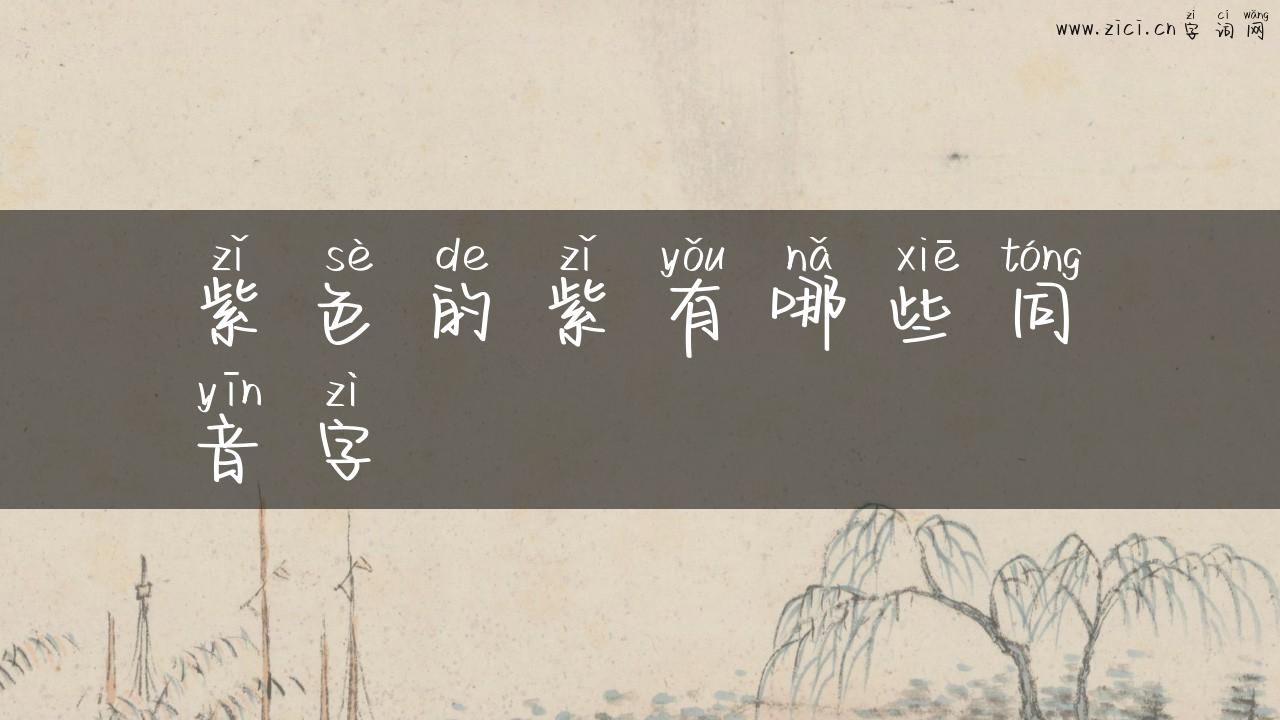 zì cí wǎng
www.zici.cn 字 词 网
zǐ sè de zǐ yǒu nǎ xiē tóng
紫 色 的 紫 有 哪 些 同
yīn zì
音 字